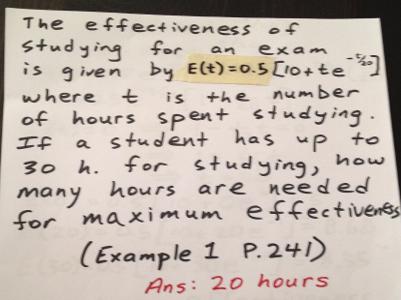 The effectiveness of
studying for an exam
is given by E(t)=0.5[10+te^-t/20]
where t is the number
of hours spent studying.
If a student has up to
30 h. for studying, how
many hours are needed
for maximum effectiveness
(Example 1 P.241)
Ans: 20 hours